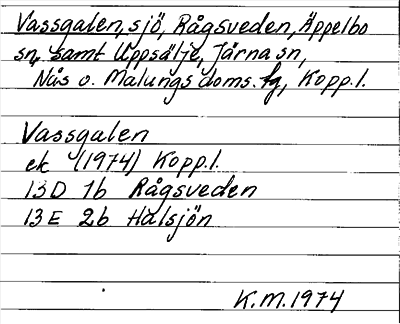 Vassgalen, sjö, Rågsveden, Äppelbo
sn, samt Uppsälje, Järna sn,
Nås o. Malungs doms. fg, Kopp.l.
Vassgalen
ek (1974) Kopp.l.
13D 7b Rågsveden
13E 2b Halsjön
K.M. 1974